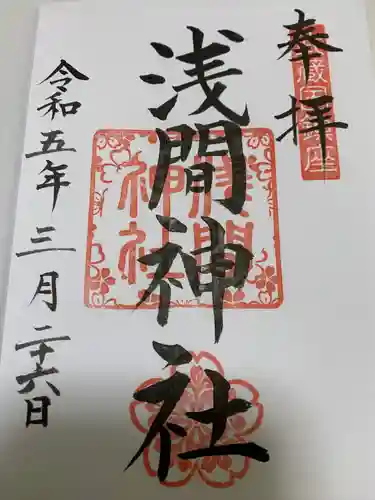 奉拝
浅間神社
令和五年三月二十六日
浅間神社